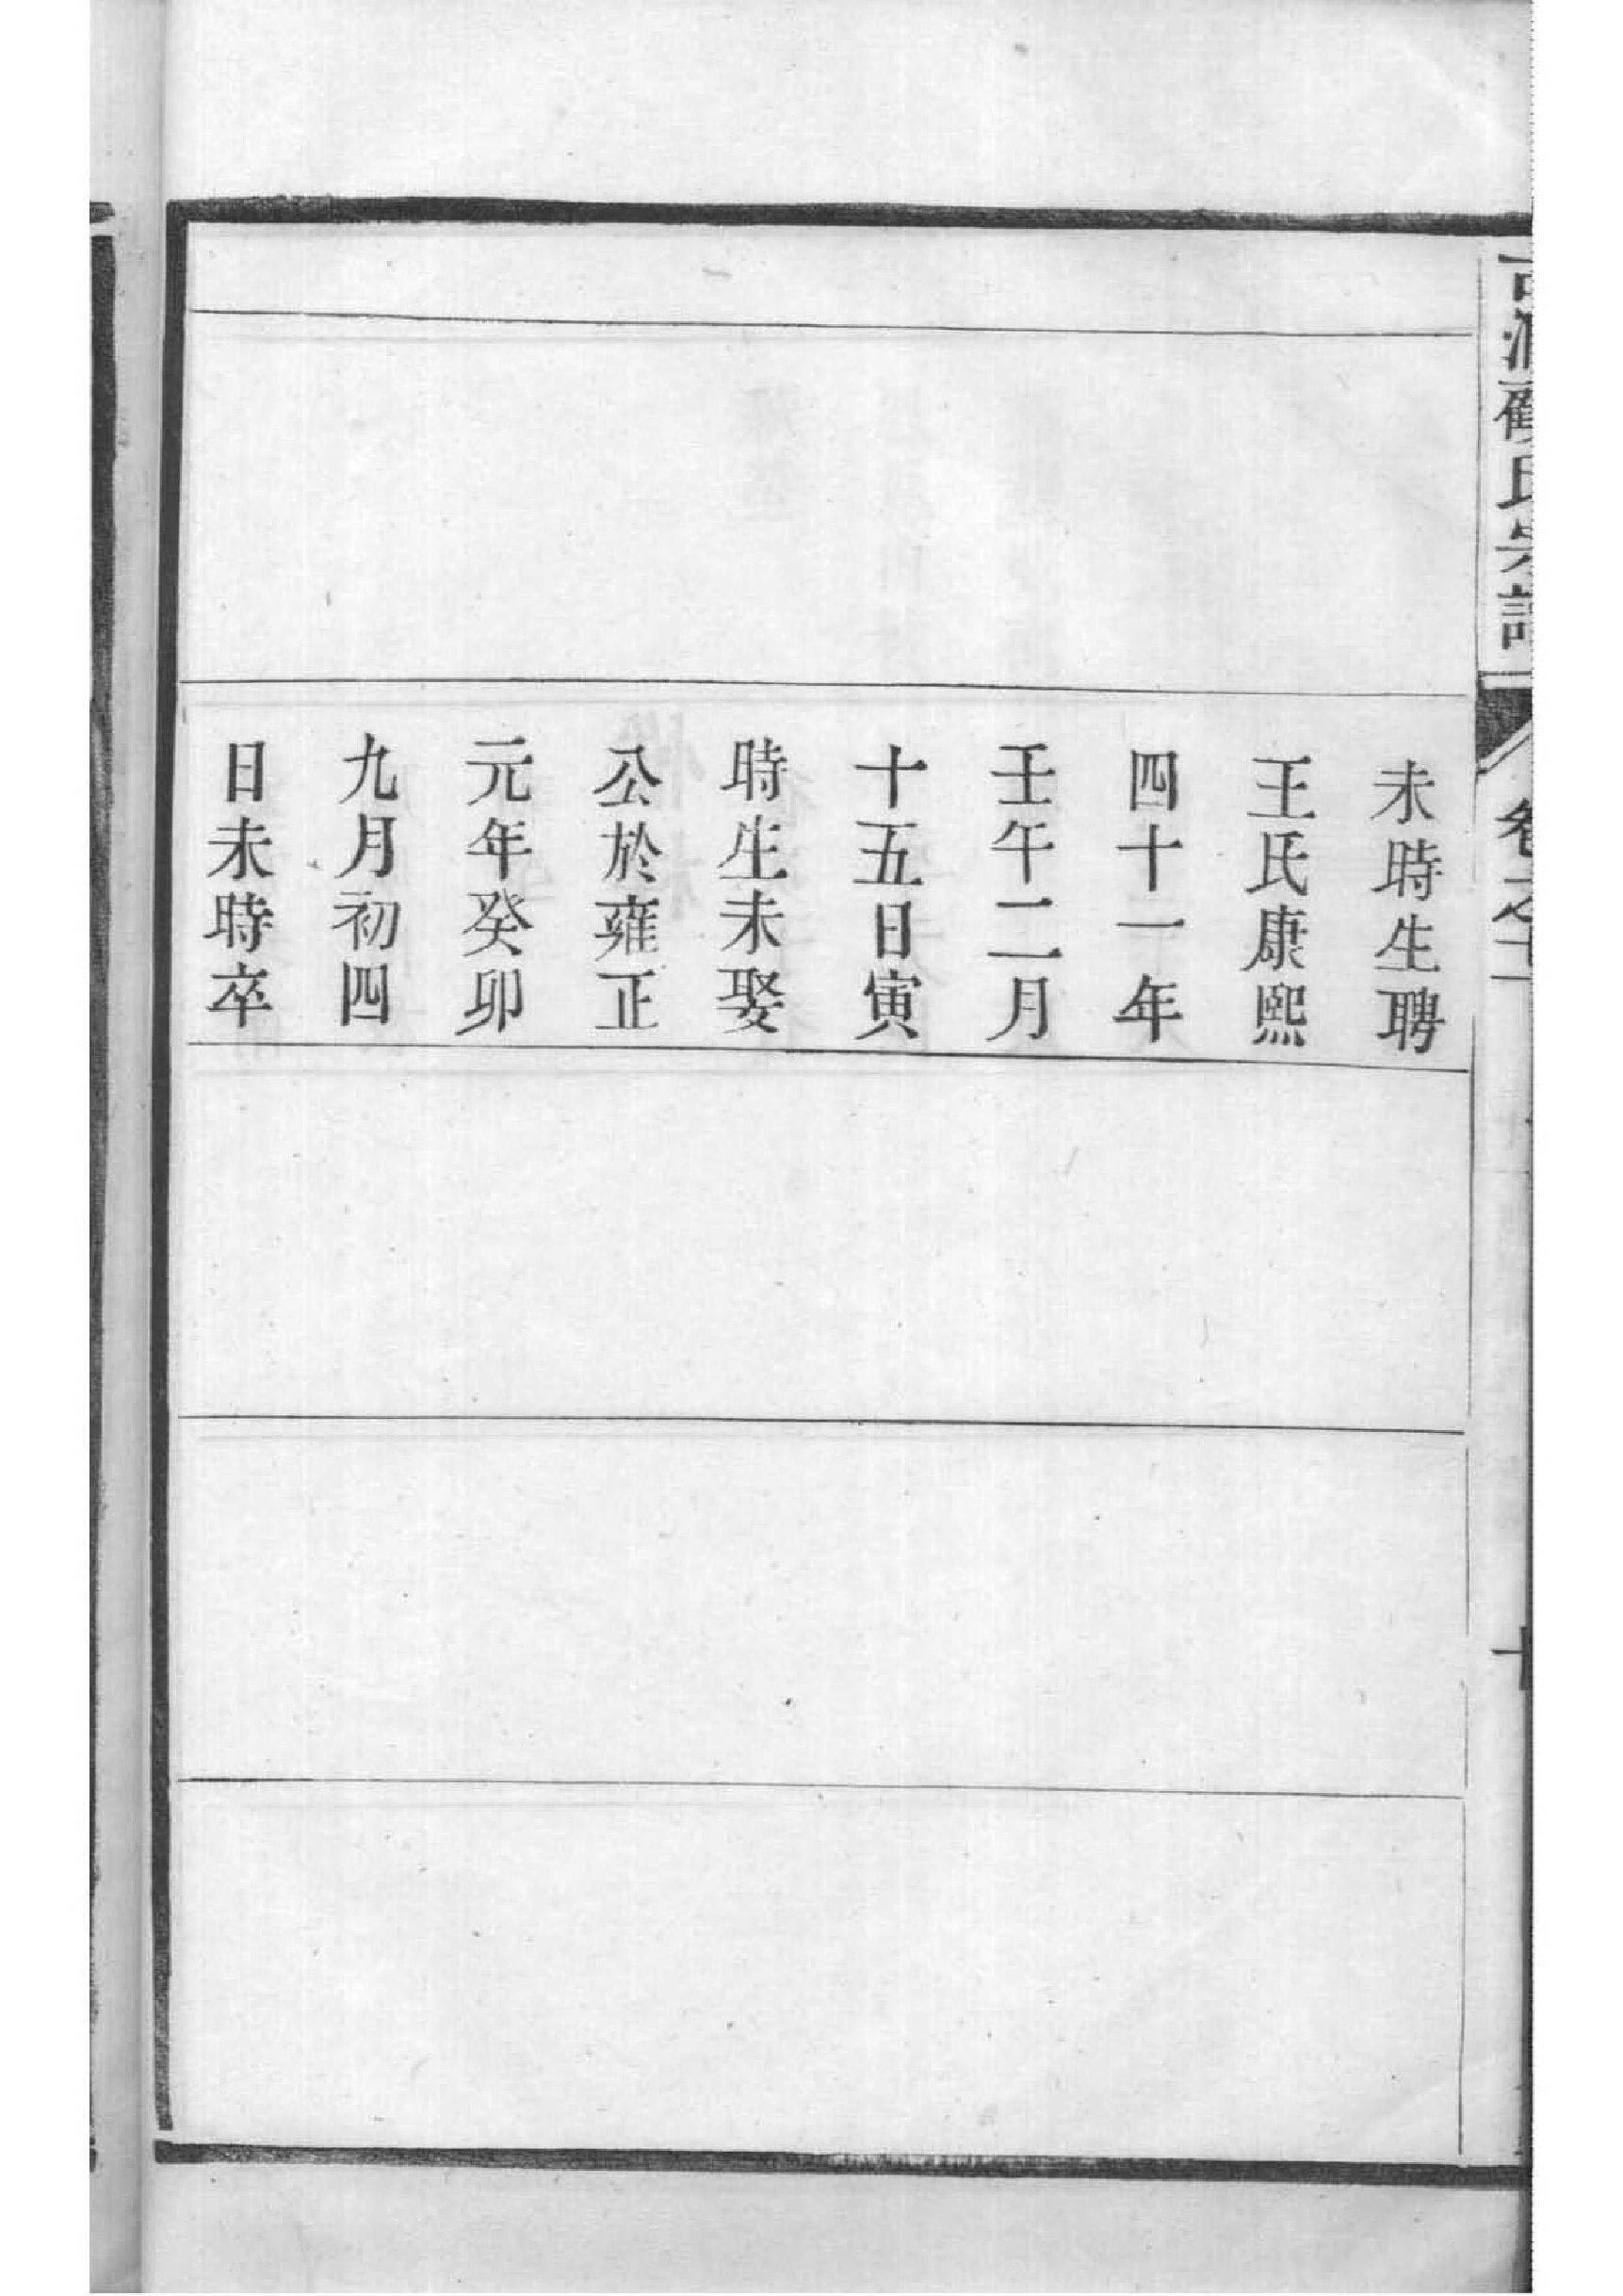 未時生聘
王氏康熙
四十一年
壬午二月
十五日寅
時生未娶
公於雍正
元年癸卯
九月初四
日未時卒